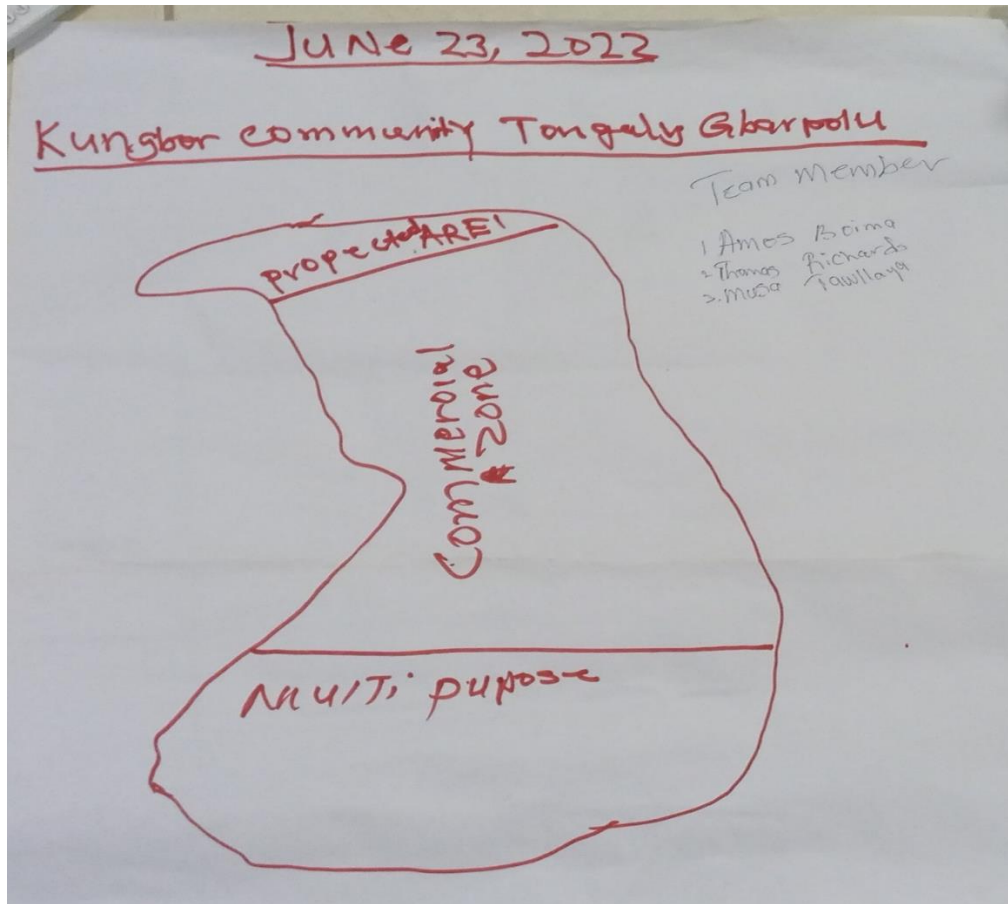 JUNe 23, 2022
Kungbor community Tongaly Gbarpolu
Team Member
1 Amos Boima
2. Thomas Richards
3. Musa Tawllaya
propected AREI
Commercial
Zone
MUlTi pupose